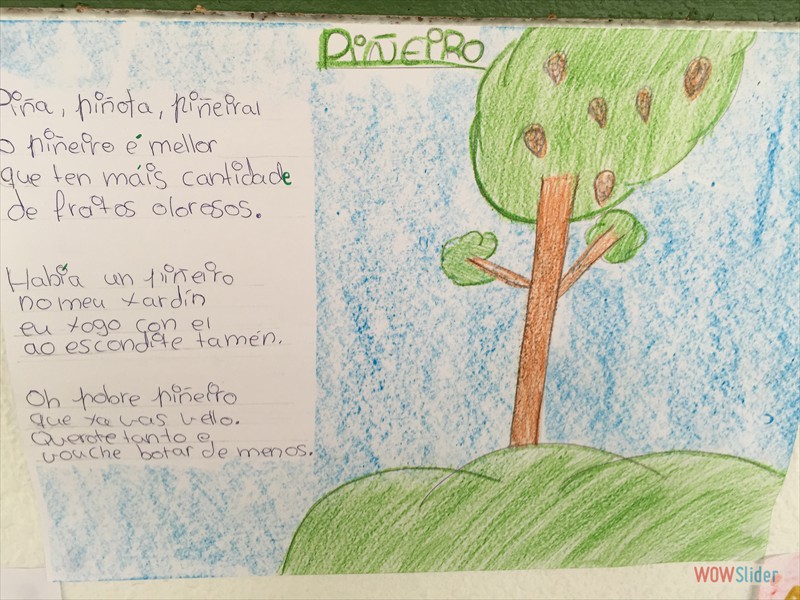 PIÑEIRO
Piña, piñota, piñeiral
o piñeiro é mellor
que ten máis cantidade
de froitos olorosos.
Había un piñeiro
no meu xardín
eu xogo con el
ao escondite tamén.
Oh pobre piñeiro
que xa vas vello.
Querote tanto e
vouche botar de menos.
WOWSlider